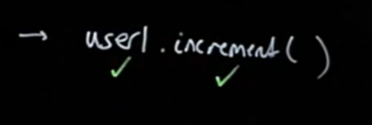 → user1.increment( )